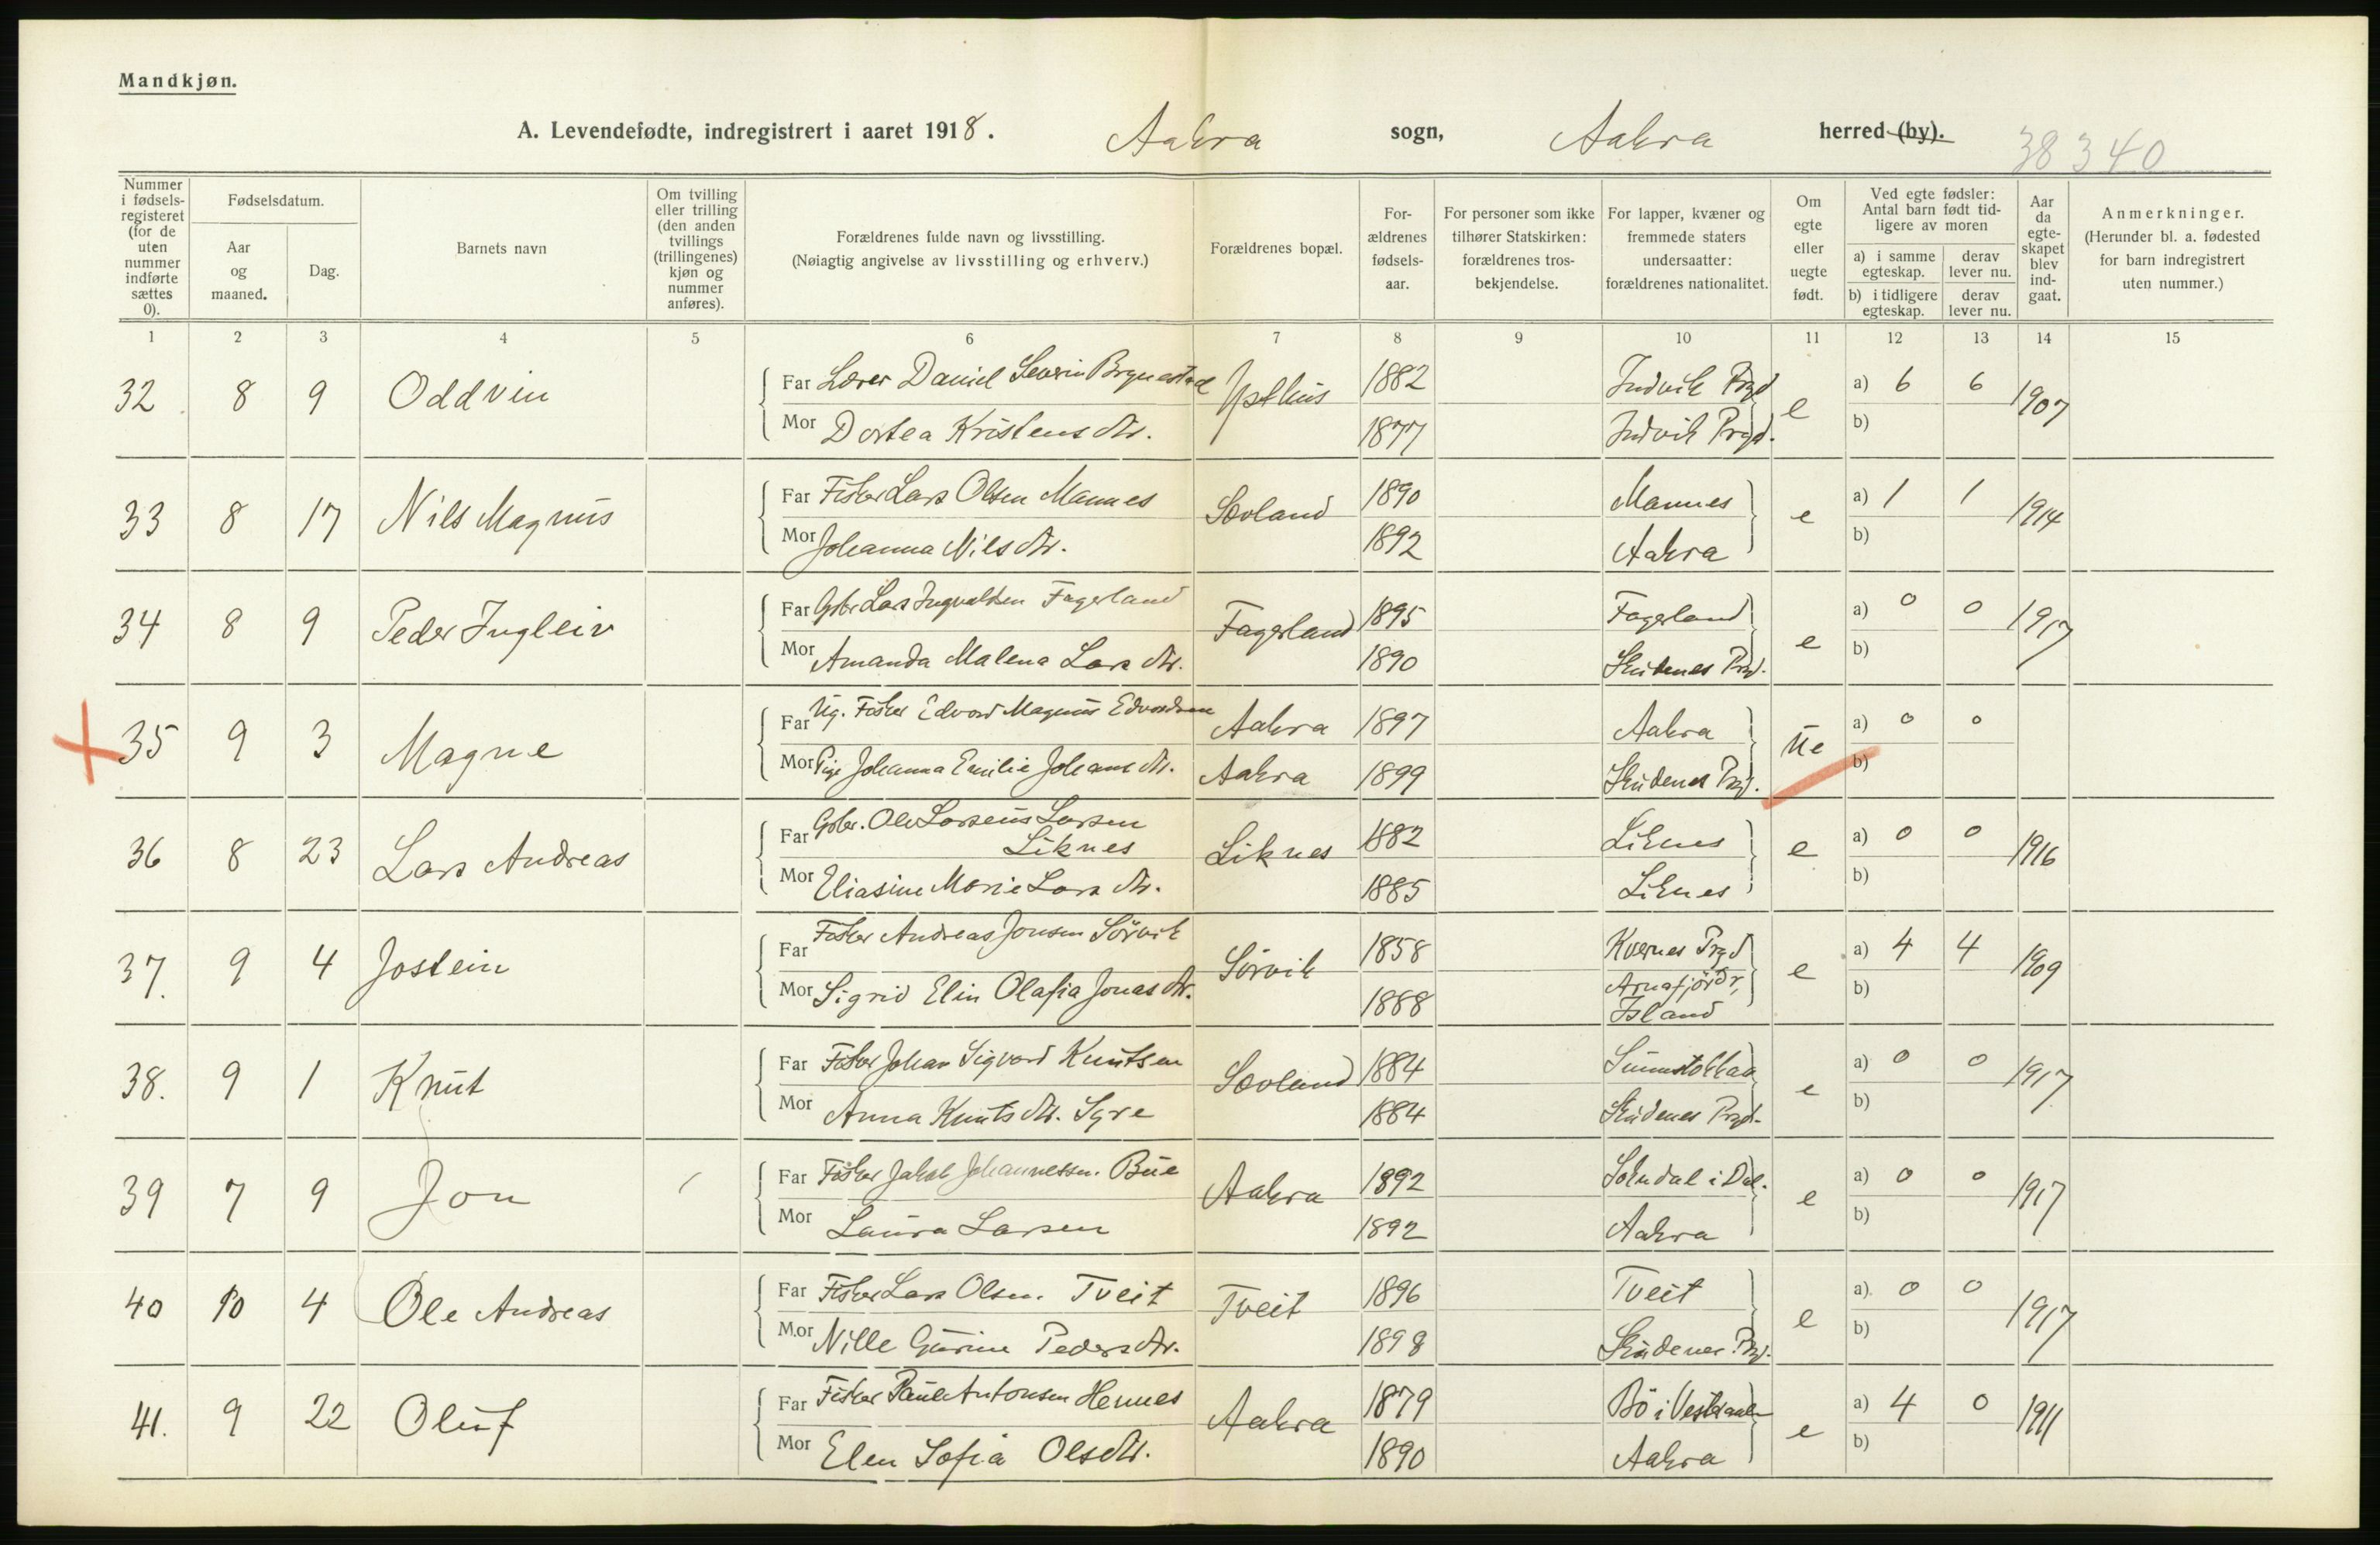 Mandkjøn.
A. Levendefødte, indregistrert i aaret 1918. Aakra sogn, Aakra herred (by). 38340
Nummer i fødsels-registeret (for de uten nummer indførte sættes 0).
Fødselsdatum.
Aar og maaned.
Dag.
Barnets navn
Om tvilling eller trilling (den anden tvillings (trillingenes) kjøn og nummer anføres).
Forældrenes fulde navn og livsstilling.
(Nøiagtig angivelse av livsstilling og erhverv.)
Forældrenes bopæl.
For-ældrenes fødsels-aar.
For personer som ikke tilhører Statskirken: forældrenes tros-bekjendelse.
For lapper, kvæner og fremmede staters undersaatter: forældrenes nationalitet.
Om egte eller uegte født.
Ved egte fødsler: Antal barn født tid-ligere av moren
a) i samme egteskap.
derav lever nu.
b) i tidligere egteskap.
derav lever nu.
Aar da egte-skapet blev ind-gaat.
Anmerkninger.
(Herunder bl. a. fødested for barn indregistrert uten nummer.)
1 2 3 4 5 6 7 8 9 10 11 12 13 14 15
32 8 9 Oddvin Far Lærer Daniel Severin Brynestad 1882 Indvik Prgd e a) 6 6 1907
Mor Dortea Kristensdtr. 1877 Indvik Prgd. b)
33 8 17 Nils Magnus Far Fisker Lars Olsen Mannes Sævland 1890 Mannes e a) 1 1 1914
Mor Johanna Nilsdtr. 1892 Aakra b)
34 8 9 Peder Ingleiv Far Gbr. Lars Ingvaldsen Fagerland Fagerland 1895 Fagerland e a) 0 0 1917
Mor Amanda Malena Larsdtr. 1890 Skudenes Prgd. b)
35 9 3 Magne Far Ug. Fisker Edvard Magnus Edvardsen Aakra 1897 Aakra ue a) 0 0
Mor Pige Johanna Emilie Johansdtr. Aakra 1899 Skudenes Prgd. b)
36 8 23 Lars Andreas Far Gbr. Ole Larsenius Larsen Liknes Liknes 1882 Liknes e a) 0 0 1916
Mor Eliasine Marie Larsdtr. 1885 Liknes b)
37. 9 4 Jostein Far Fisker Andreas Jonsen Sörvik Sörvik 1858 Kvernes Prgd e a) 4 4 1909
Mor Sigrid Elin Olafia Jonasdtr. 1888 Arnafjördr, Island b)
38. 9 1 Knut Far Fisker Johan Sigvard Knutsen Sævland 1884 e a) 0 0 1917
Mor Anna Knutsdtr. Syre 1884 Skudenes Prgd. b)
39 7 9 Jon Far Fisker Jakob Johannessen. Bue Aakra 1892 Sokndal i Dal. e a) 0 0 1917
Mor Laura Larsen 1892 Aakra b)
40 10 4 Ole Andreas Far Fisker Lars Olsen. Tveit Tveit 1896 Tveit e a) 0 0 1917
Mor Nille Gurine Pedersdtr. 1898 Skudenes Prgd. b)
41. 9 22 Oluf Far Fisker Paul Antonsen Hennes Aakra 1879 Bö i Vesteraalen e a) 4 0 1911
Mor Elen Sofia Olsdtr. 1890 Aakra b)